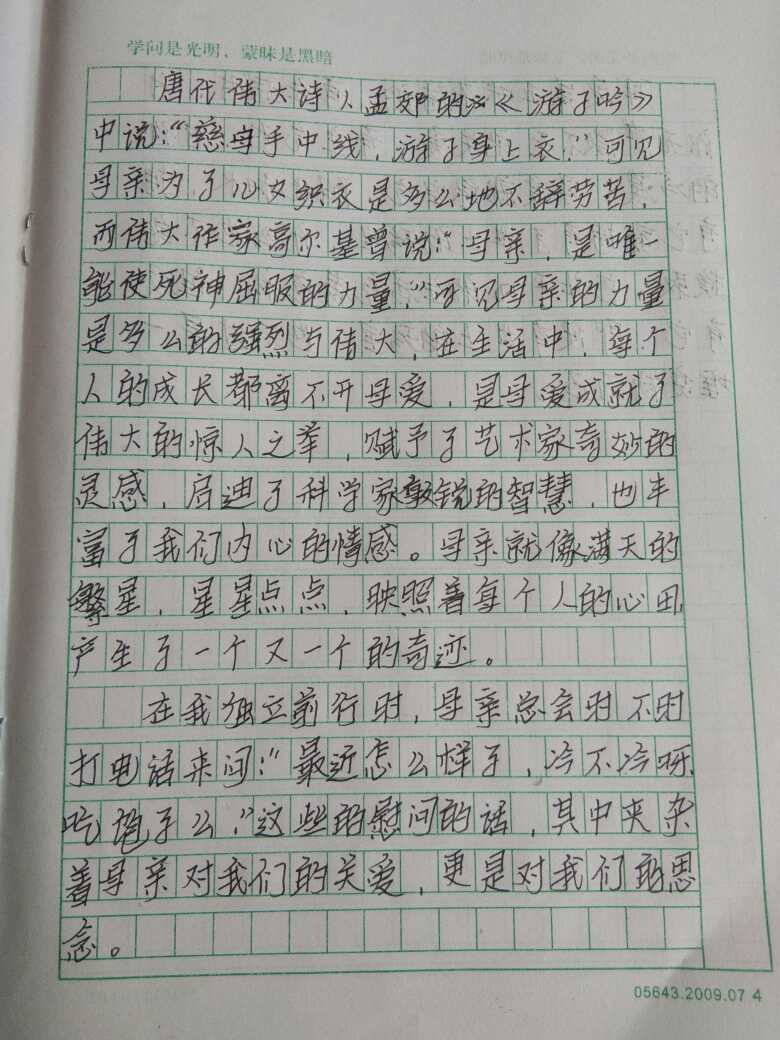 学问是光明，蒙昧是黑暗
唐代伟大诗人孟郊的《游子吟》
中说：“慈母手中线，游子身上衣，”可见
母亲为了儿女织衣是多么地不辞劳苦，
而伟大作家高尔基曾说：“母亲，是唯一
能使死神屈服的力量，”可见母亲的力量
是多么的强烈与伟大，在生活中，每个
人的成长都离不开母爱，是母爱成就了
伟大的惊人之举，赋予了艺术家奇妙的
灵感，启迪了科学家敏锐的智慧，也丰
富了我们内心的情感。母亲就像满天的
繁星，星星点点，映照着每个人的心田，
产生了一个又一个的奇迹。
在我独立前行时，母亲总会时不时
打电话来问：“最近怎么样了，冷不冷呀，
吃饱了么，”这些的慰问的话，其中夹杂
着母亲对我们的关爱，更是对我们的思
念。
05643.2009.07 4